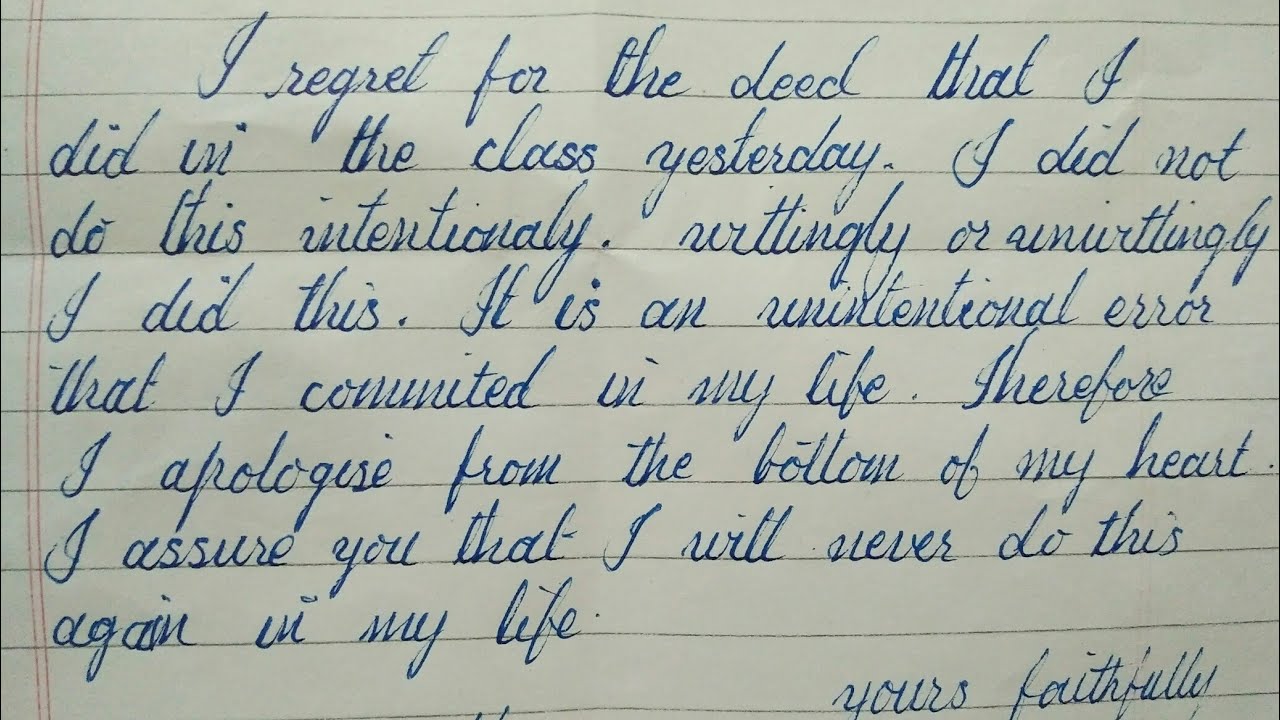 I regret for the deed that I
did in the class yesterday. I did not
do this intentionaly. wittingly or unwittingly
I did this. It is an unintentional error
that I commited in my life. Therefore
I apologise from the bottom of my heart.
I assure you that I will never do this
again in my life.
yours faithfully